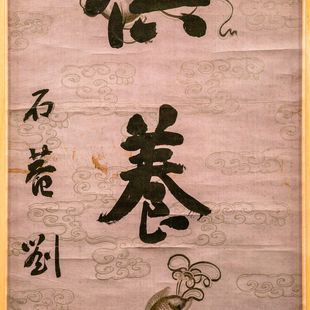 養
石菴劉